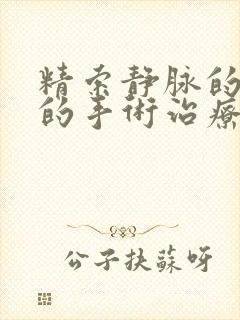 精索静脉的
的手術治療
公子扶蘇呀